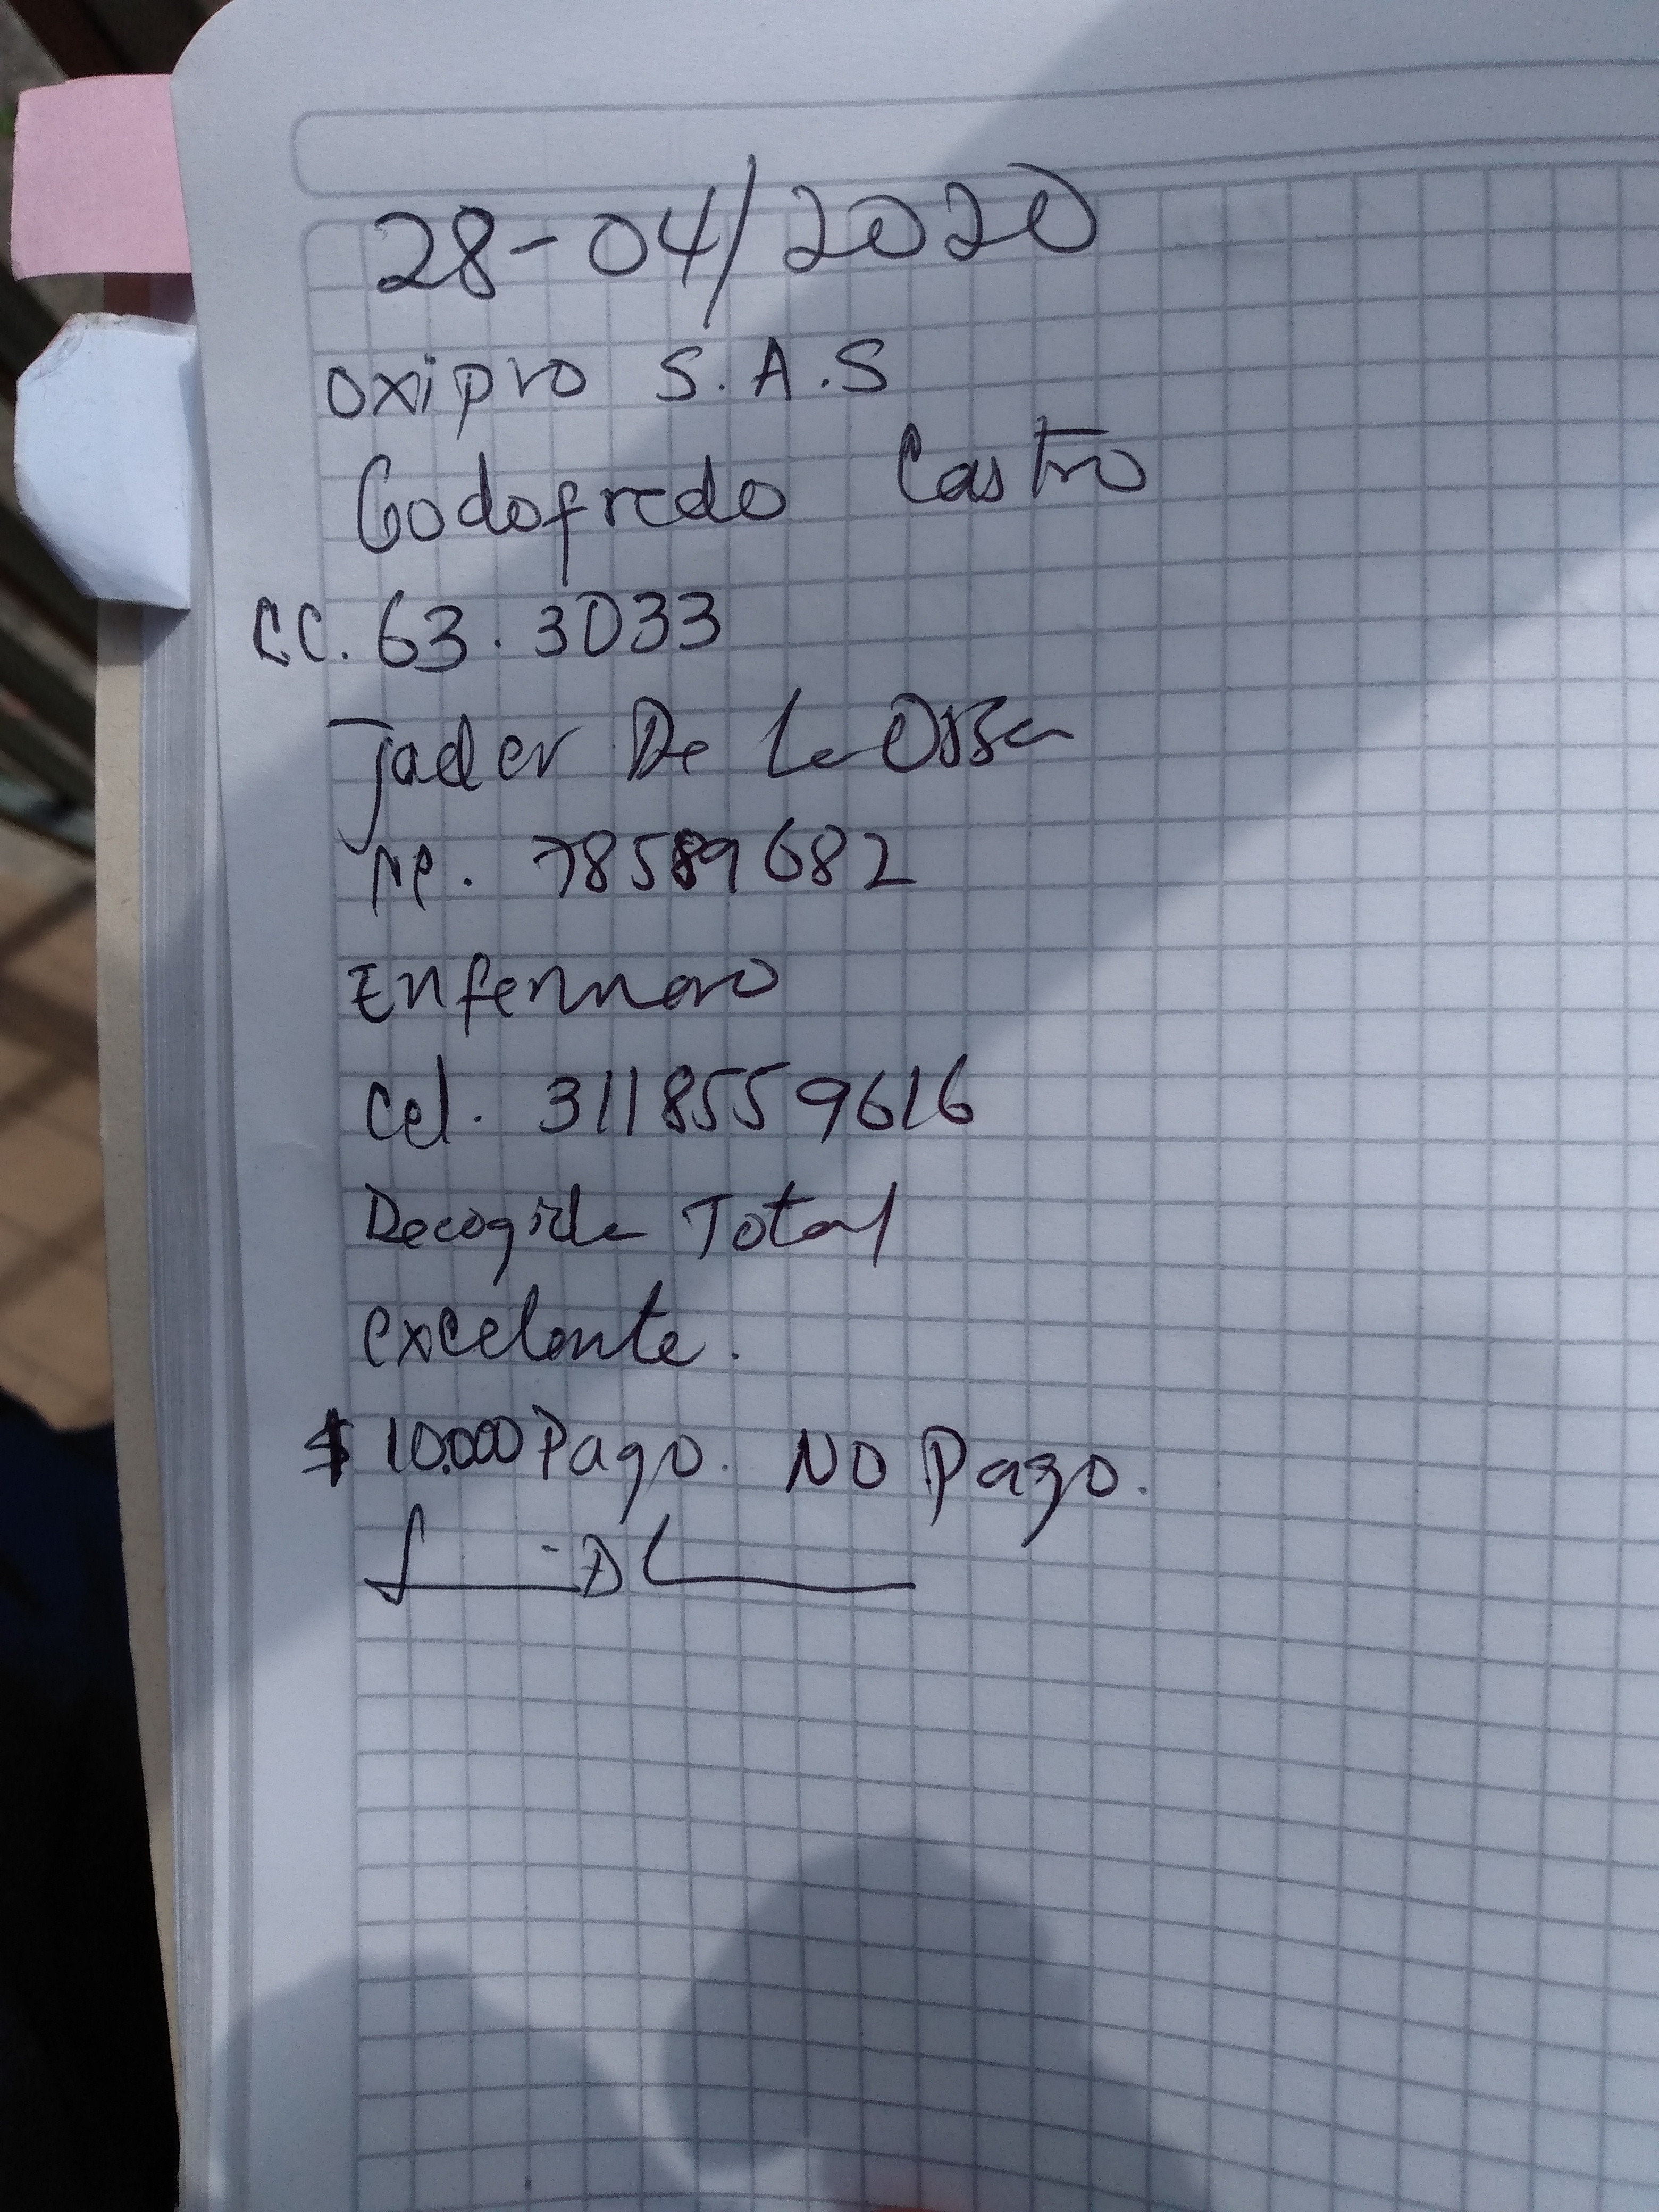 28-04/2020
oxipro S.A.S
Godofredo Castro
CC. 63.3033
Jader De la Ossa
CC. 78589682
Enfermero
Cel. 3118559616
Recogida Total
excelente.
$ 10.000 Pago. NO Pago.